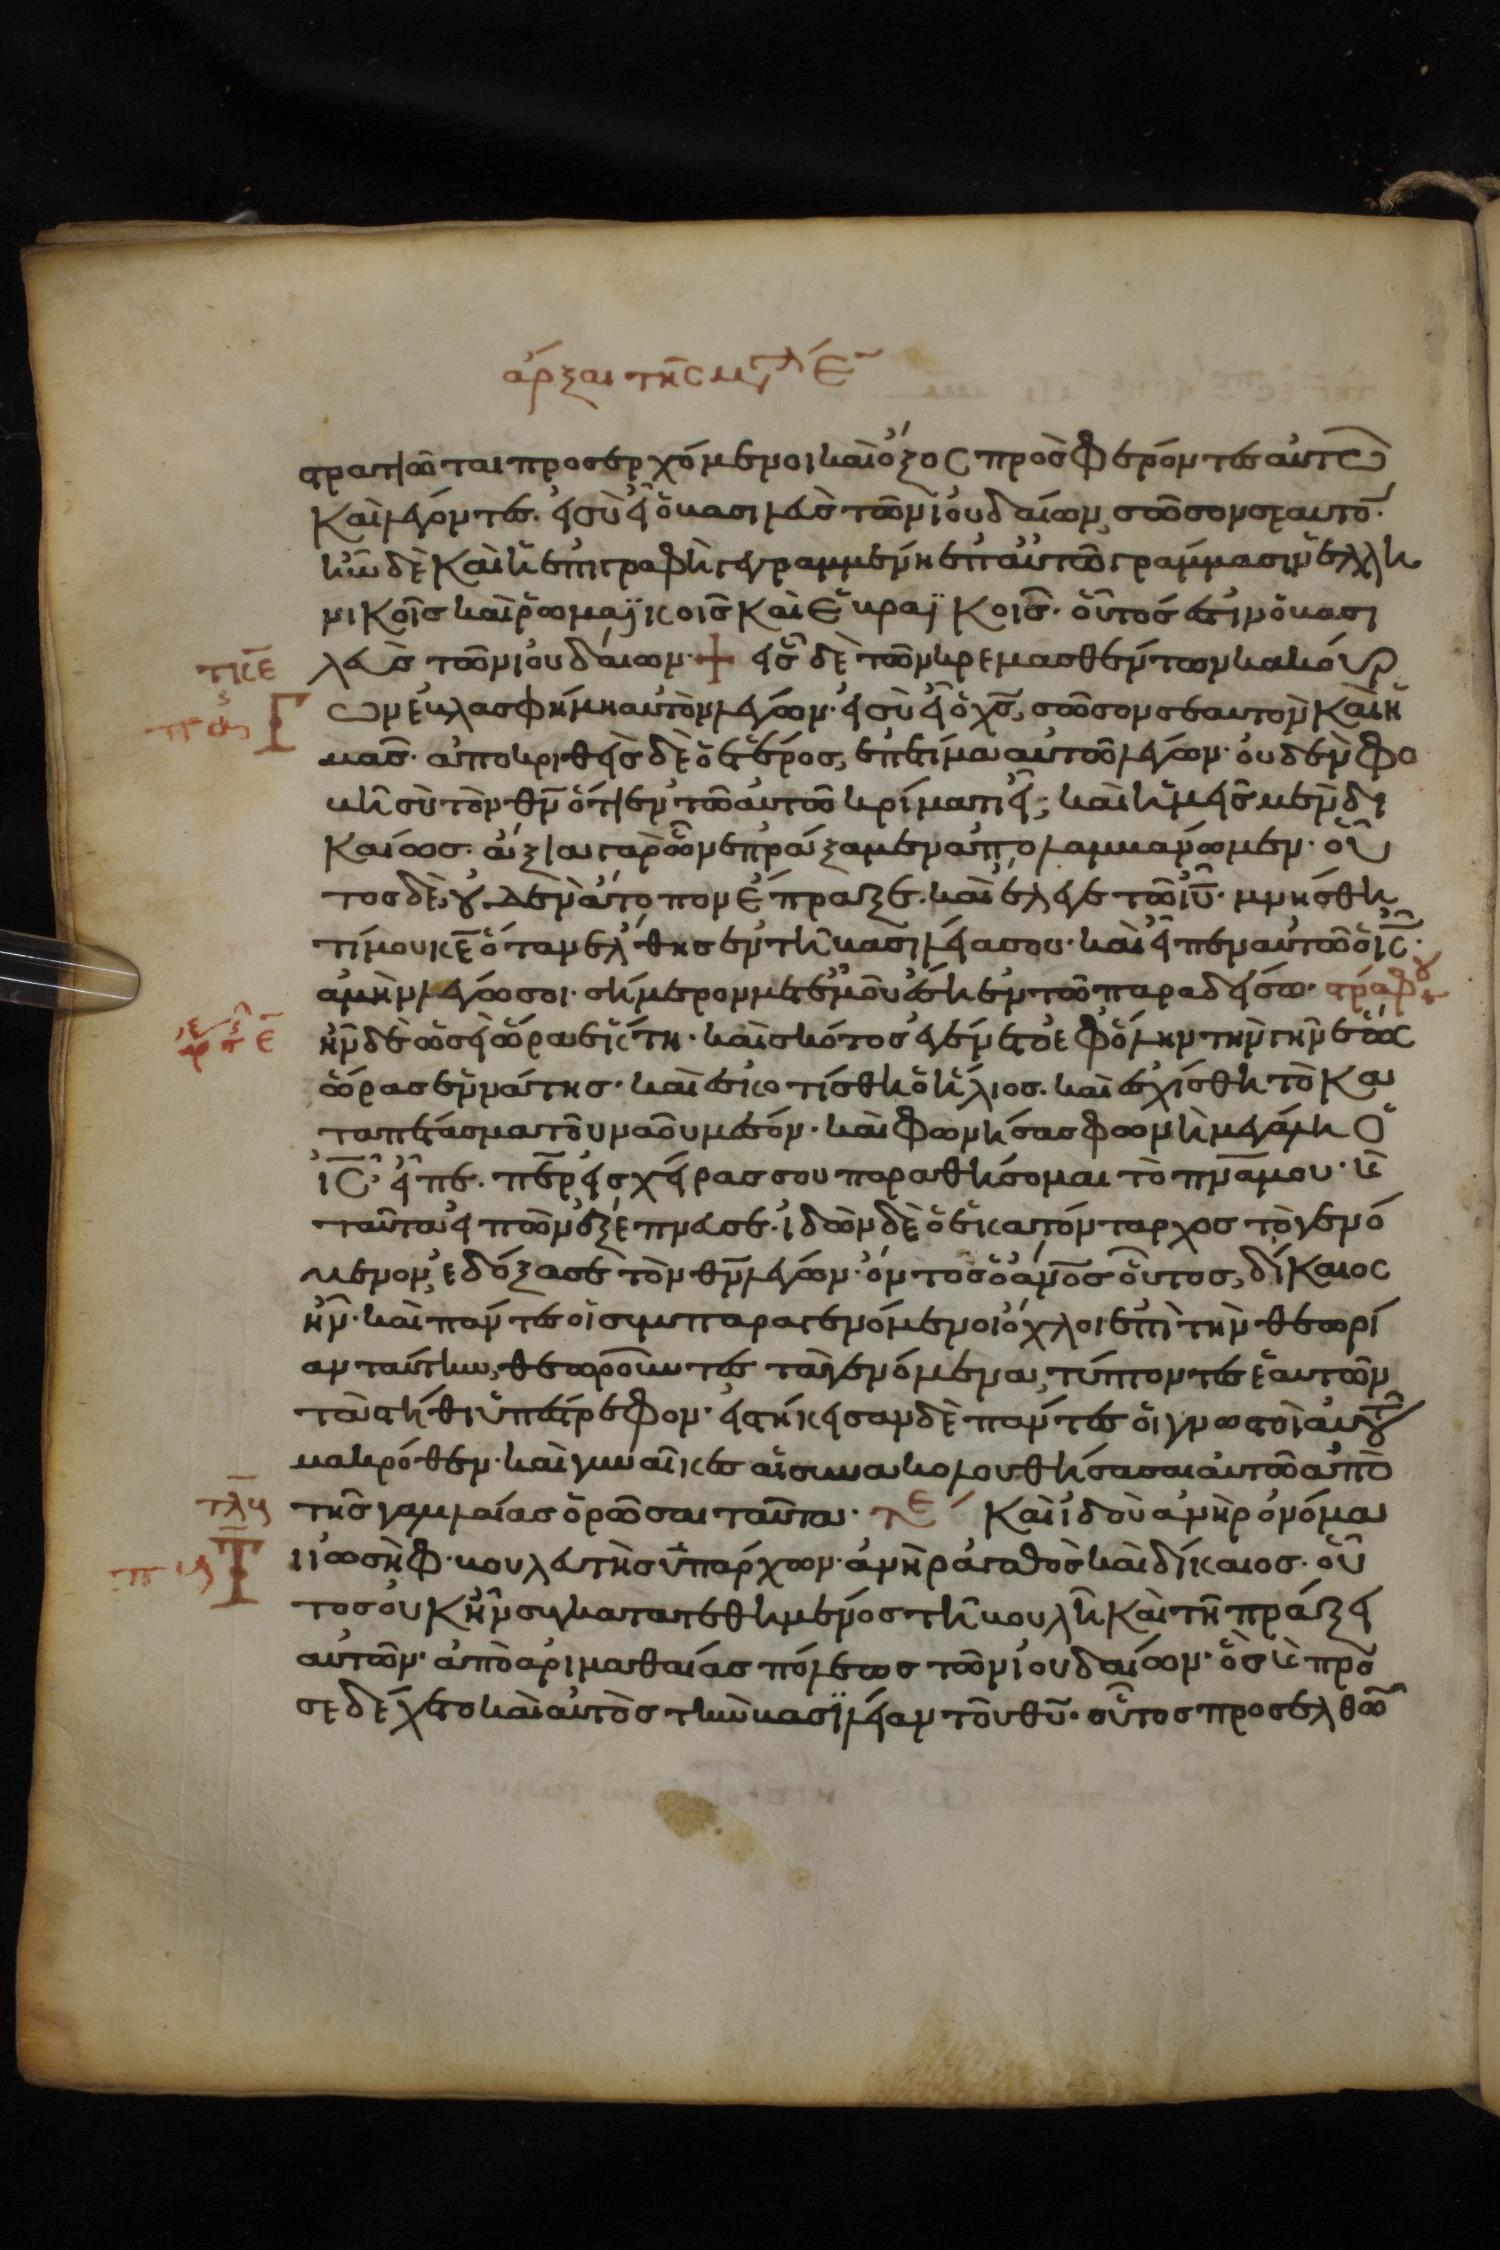 ἄρξαι τῆς μγλ Ε
στρατιῶται προσερχόμενοι καὶ ὄξος πρὸσφέροντες αυτῶ
Καὶ λέγοντες· εἰ σὺ εἶ ὁ βασιλεὺς τῶν ἰουδαίων, σῶσον σεαυτόν·
ἦν δὲ Καὶ ἡ ἐπιγραφὴ γεγραμμένη ἐπ αὐτῶ γράμμασιν ἑλλη
νικοῖς καὶ ῥωμαϊκοις Καὶ Ἑβραϊκοις· οὗτός ἐστιν ὁ βασι
λεὺς τῶν ιουδαίων· + εἷς δὲ τῶν κρεμασθέντων κακούρ
γων ἐβλασφήμη αυτὸν λέγων· εἰ σὺ εἶ ὁ χς, σῶσον σεαυτον Καὶ ἡ
μας· ἀποκριθεὶς δὲ ὁ ἕτερος, ἐπετίμα αυτῶ λέγων· ουδὲν φο
βῆ σὺ τὸν θν ὅτι ἐν τῶ αυτῶ κρίματι εἶ; καὶ ἡμεῖς μὲν δι
Καίως· ἄξια γὰρ ὧν ἐπράξαμεν ἀπολαμβάνωμεν· οὗ
τος δὲ, οὐδὲν ἄτοπον ἔπραξε. καὶ ἔλεγε τῶ ιυ· μνήσθη
τί μου κε ὅταν ἔλθης ἐν τῆ βασιλεία σου· καὶ εἶπεν αυτῶ ὁ ις·
ἀμὴν λέγω σοι· σήμερον μετ ἐμοῦ ἔση ἐν τῶ παραδείσω·
ἦν δὲ ὡσεὶ ὥρα ἕκτη· καὶ σκότος ἐγένετο ἐφ ὅλην τὴν γῆν ἕως
ὥρας ἐννάτης· καὶ ἐσκοτίσθη ὁ ἥλιος. καὶ ἐσχίσθη τὸ Κα
ταπέτασμα τοῦ ναοῦ μέσον· καὶ φωνήσας φωνὴ μεγάλη ὁ
ις εἶπε. περ εἰς χεῖρας σου παραθήσομαι τὸ πνα μου· κὲ
ταῦτα εἰπὼν ἐξέπνευσε· ἰδὼν δὲ ὁ ἑκατόνταρχος τὸ γενό
μενον, εδόξασε τὸν θν λέγων· ὄντος ὁ ανος οὗτος, δίκαιος
ἦν· καὶ πάντες οἱ συμπαραγενόμενοι ὄχλοι ἐπὶ τὴν θεωρί
αν ταύτην, θεωροῦντες τα γενόμενα, τύπτοντες ἑαυτῶν
τα στήθι ὑπέστρεφον· εἰστήκεισαν δὲ πάντες οἱ γνωστοὶ αὐτοῦ
μακρόθεν· καὶ γυναῖκες αἱ συνακολουθήσασαι αυτῶ ἀπὸ
τῆς γαλιλαίας ὁρῶσαι ταῦτα· Καὶ ἰδοὺ ἀνὴρ ὀνόμα
Τι ιωσὴφ· βουλευτὴς ὑπάρχων· ἀνὴρ ἀγαθὸς καὶ δίκαιος· οὗ
τος ουκ ἦν συγκατατεθημένος τῆ βουλῆ Καὶ τῆ πράξει
αυτῶν· ἀπὸ αριμαθαίας πόλεως τῶν ιουδαίων· ὃς κὲ προ
σεδέχετο καὶ αυτὸς τὴν βασιλείαν τοῦ θυ· οὗτος προσελθὼν